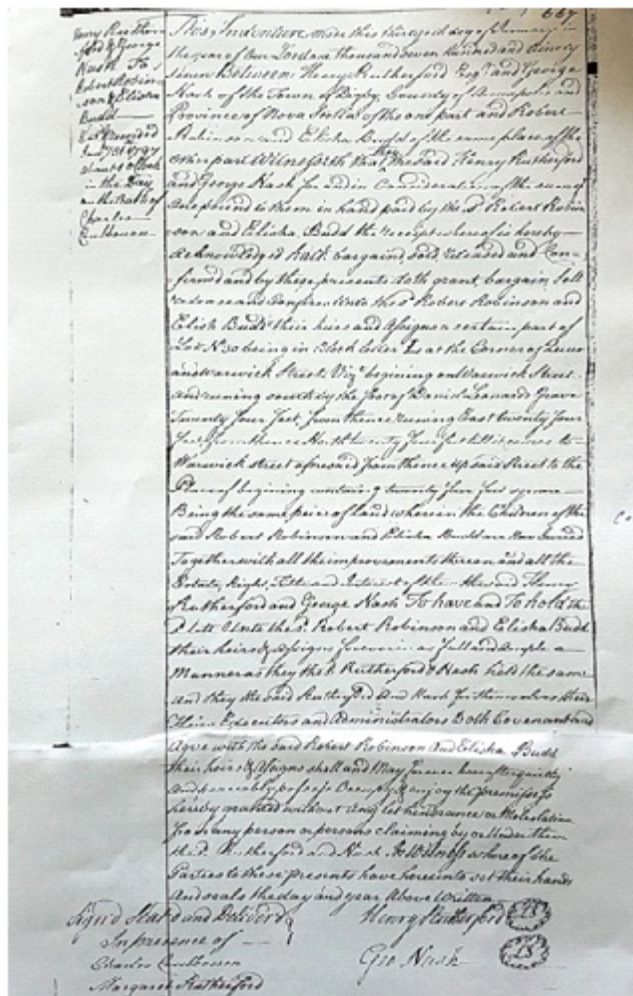 667
Henry Ruther
ford & George
Nash To
Robert Robin
son & Elisha
Budd
Recorded
1797
in the Day
on the Oath of
Charles
This Indenture made this day of January in
the year of Our Lord one thousand seven hundred and Ninety
seven Between Henry Rutherford Esqr and George
Nash of the Town of Digby County of Annapolis and
Province of Nova Scotia of the one part and Robert
Robinson and Elisha Budd of the same place of the
other part Witnesseth that the said Henry Rutherford
and George Nash for and in Consideration of the sum of
one pound to them in hand paid by the sd Robert Robin
son and Elisha Budd the receipt whereof is hereby
acknowledged hath bargained, sold, released and Con-
firmed and by these presents doth grant, bargain, sell
release and Confirm Unto the sd Robert Robinson and
Elish Budd their heirs and Assigns a certain part of
Lot No 30 being in Block letter L at the Corner of
and Warwick Street Vizt begining on Warwick Street
and runing south by the of David Leonards Grave
Twenty four feet, from thence runing East twenty four
feet from thence North twenty four feet till it comes to
Warwick street aforesaid from thence up said Street to the
Place of begining containing twenty four feet square
Being the same peice of land wherein the Children of the
said Robert Robinson and Elisha Budd are now buried
Together with all the improvements thereon and all the
Estate, Right, Title and Interest of the said Henry
Rutherford and George Nash To have and To hold the
Unto the sd Robert Robinson and Elisha Budd
their heirs & Assigns forever in as full and Ample a
Manner as they the sd Rutherford & Nash held the same
and they the said Rutherford And Nash for themselves
Their Executors and Administrators Doth Covenant and
Agree with the said Robert Robinson And Elisha Budd
their heirs & Assigns shall and May forever hereafter quietly
And peaceably possess Occupy & enjoy the premises
hereby granted without any let hindrance or Molestation
from any person or persons claiming by or Under them
the sd Rutherford and Nash In Witness whereof the
Parties to these presents have hereunto set their hands
And seals the day and year Above written
Sign'd Seal'd and Deliver'd
In presence of
Charles
Margaret Rutherford
Henry Rutherford LS
Geo Nash LS